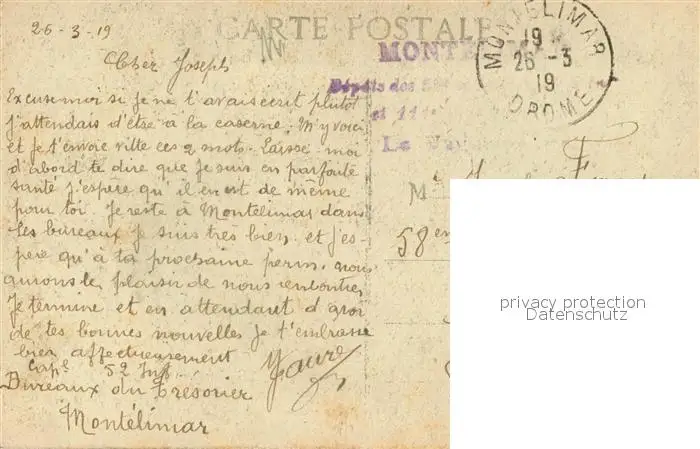 CARTE POSTALE
26-3-19
Cher Joseph
Excuse moi si je ne t'avais ecrit plutot
j'attendais d'être à la caserne. M'y voici
et je t'envoie vitte ces 2 mots. Laisse moi
d'abord te dire que je suis en parfaite
santé j'espère qu'il en est de même
pour toi. Je reste à Montélimar dans
les bureaux je suis très bien, et j'es-
père qu'à ta prochaine perm. nous
aurons le plaisir de nous rentontrer
Je termine et en attendant d'avoir
de tes bonnes nouvelles je t'embrasse
bien affectueusement
Faure
Cape 52 Inf
Bureaux du Trésorier
Montélimar
MONTÉ
Dépôts des
et 11
Le
MONTELIMAR
19
26 -3
19
DROME
M
58em
privacy protection
Datenschutz